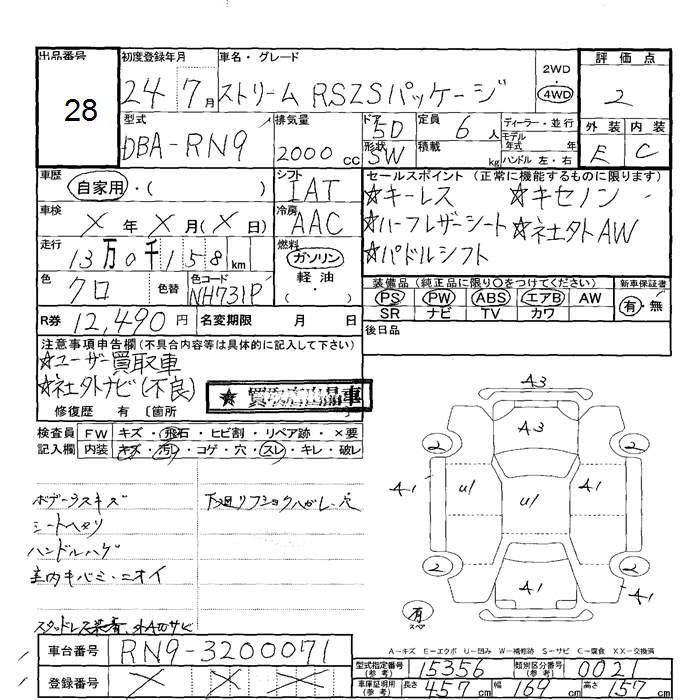 出品番号
28
初度登録年月
24年7月
車名・グレード
ストリーム RSZSパッケージ
2WD
4WD
評価点
2
外装 内装
E C
型式
DBA-RN9
排気量
2000cc
ドア 5D
形状 SW
定員 6人
積載 kg
ディーラー・並行
モデル年式 年
ハンドル 左・右
車歴
自家用・( )
シフト
IAT
車検
X年X月(X日)
冷房
AAC
走行
13万0千158km
燃料
ガソリン
軽油
・( )
色
クロ
色替
色コード
NH731P
R券 12,490円 名変期限 月 日
セールスポイント(正常に機能するものに限ります)
☆キーレス ☆キセノン
☆ハーフレザーシート ☆社外AW
☆パドルシフト
装備品(純正品に限り○をつけてください)
PS PW ABS エアB AW
SR ナビ TV カワ
新車保証書
有・無
後日品
注意事項申告欄(不具合内容等は具体的に記入して下さい)
☆ユーザー買取車
☆社外ナビ(不良)
修復歴 有〔箇所
検査員記入欄
FW キズ・飛石・ヒビ割・リペア跡・×要
内装 キズ・汚レ・コゲ・穴・スレ・キレ・破レ
ボデーラスキズ
シートヘタリ
ハンドルハゲ
室内キバミ・ニオイ
スタッドレス装着、
A3
A3
2
2
A1
U1
U1
A1
A1
2
2
A1
有
スペア
A-キズ E-エクボ U-凹み W-補修跡 S-サビ C-腐食 XX-交換済
車台番号 RN9-3200071
登録番号 X X X
型式指定番号(参考) 15356 類別区分番号(参考) 0021
車庫証明用(参考) 長さ 457cm 幅 169cm 高さ 157cm